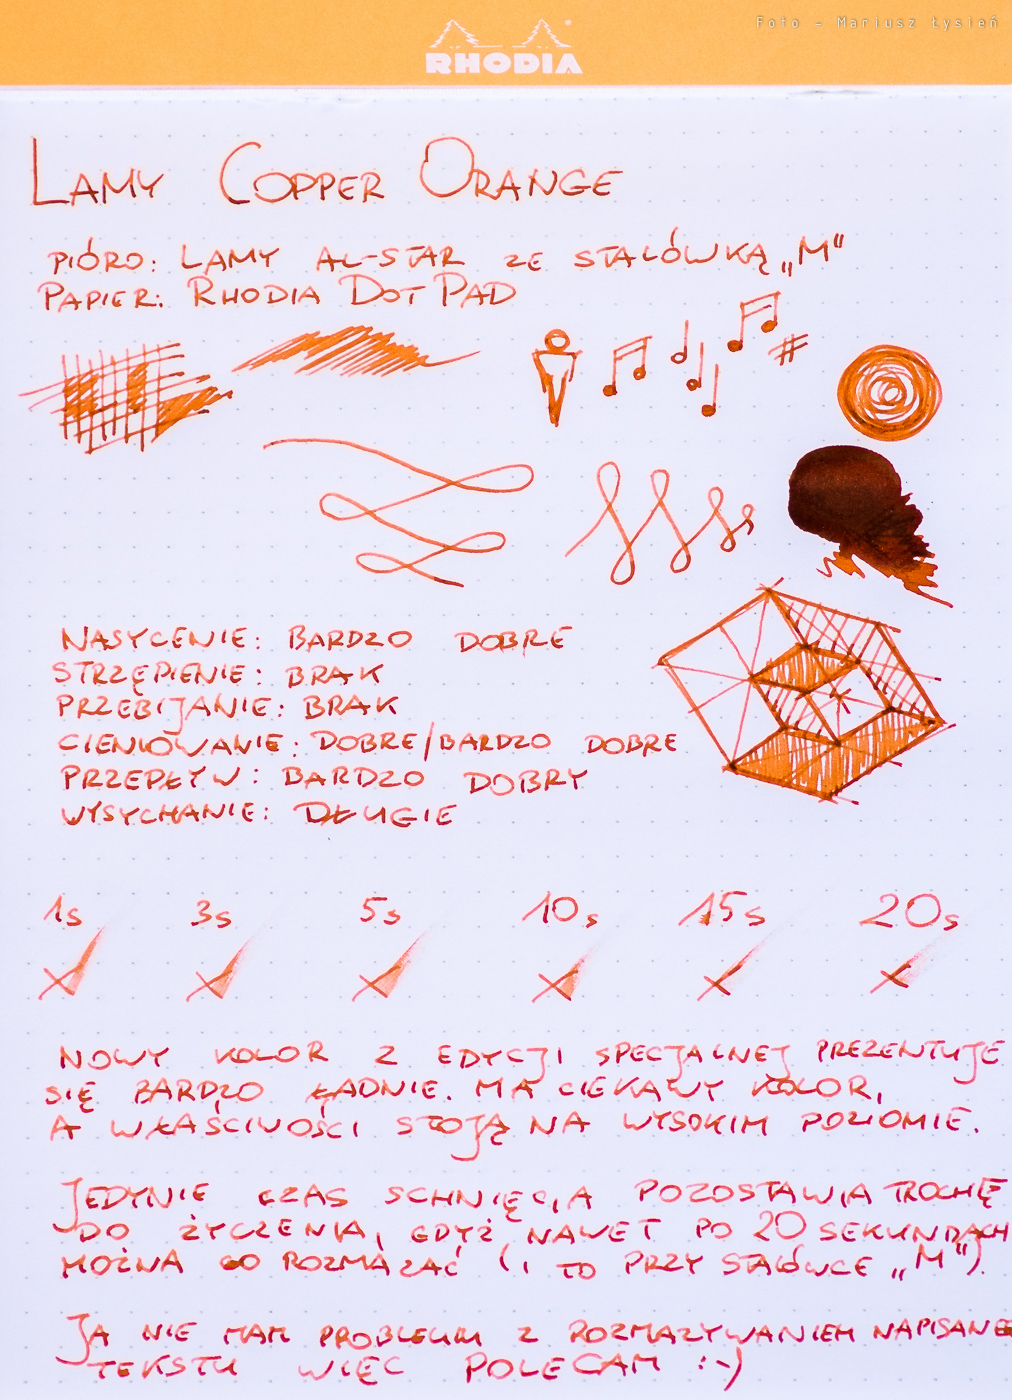 Foto - Mariusz Łysień
RHODIA
LAMY COPPER ORANGE
PIÓRO: LAMY AL-STAR ZE STALÓWKĄ „M"
PAPIER: RHODIA DOT PAD
NASYCENIE: BARDZO DOBRE
STRZĘPIENIE: BRAK
PRZEBIJANIE: BRAK
CIENIOWANIE: DOBRE/BARDZO DOBRE
PRZEPŁYW: BARDZO DOBRY
WYSYCHANIE: DŁUGIE
1s 3s 5s 10s 15s 20s
NOWY KOLOR Z EDYCJI SPECJALNEJ PREZENTUJE
SIĘ BARDZO ŁADNIE. MA CIEKAWY KOLOR,
A WŁAŚCIWOŚCI STOJĄ NA WYSOKIM POZIOMIE.
JEDYNIE CZAS SCHNIĘCIA POZOSTAWIA TROCHĘ
DO ŻYCZENIA, GDYŻ NAWET PO 20 SEKUNDACH
MOŻNA GO ROZMAZAĆ (I TO PRZY STALÓWCE „M").
JA NIE MAM PROBLEMU Z ROZMAZYWANIEM NAPISANE
TEKSTU WIĘC POLECAM :-)